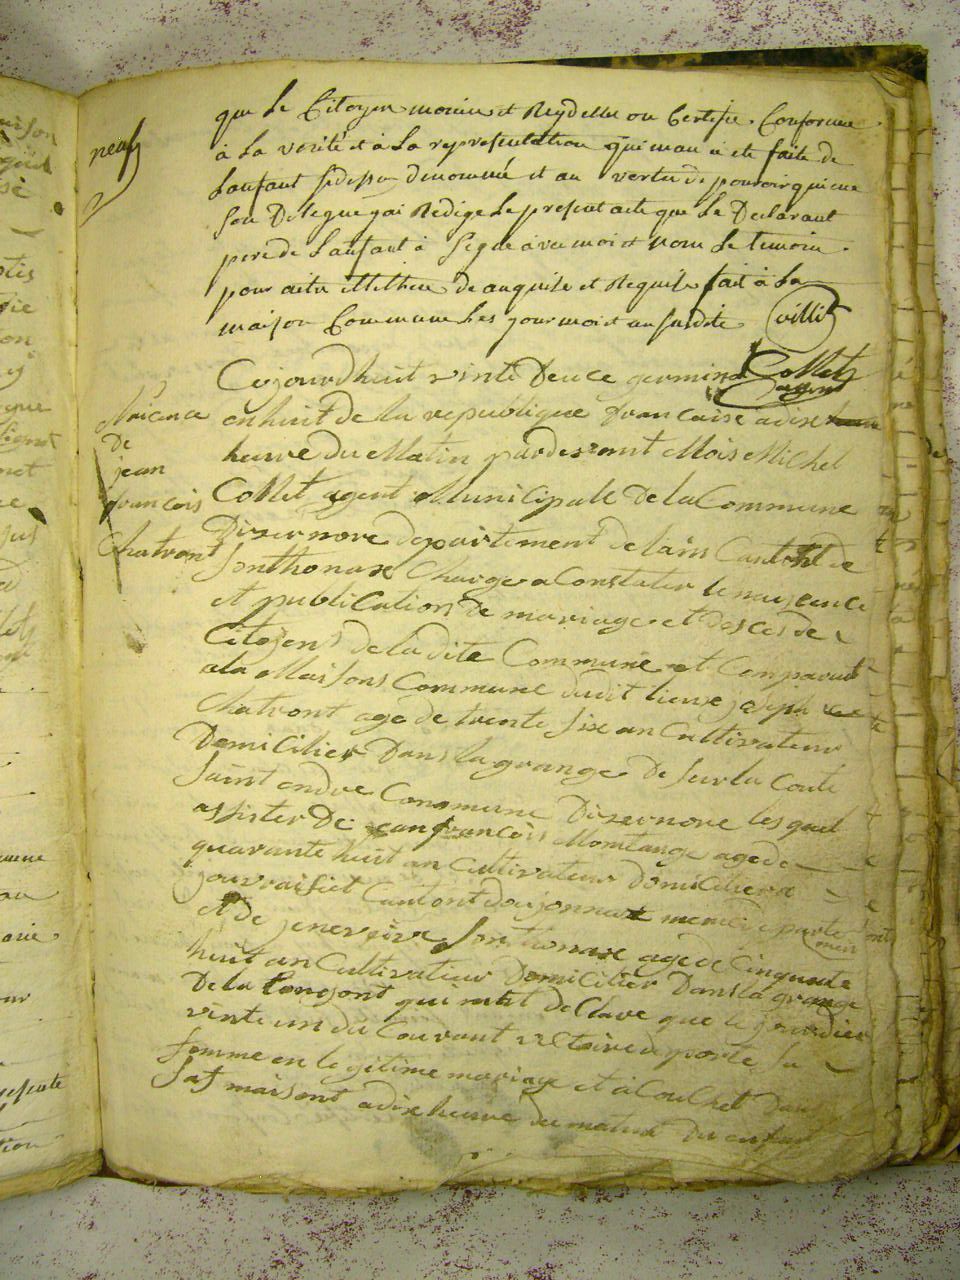 neuf
que le Citoyen monier et Reydellet on Certifie Conforme
à La vérité et à La representation qui mau a ete faite de
Lanfant Sidesu denommé et au vertu de pouvoir qui me
Son Delegue jai Redige Le present acte que Le Declarant
pere de Lanfant à Signe avec moi et non Le temoin
pour aitre illethere de anquise et Requise fait à La
maison Commune Les jour moi et an Susdite
Collet
agent
Naicence
de
jean
francois
Chatront
Cejourdhuit vinte Deuce germinal
en huit de la republique francaise a dixe
heure du Matin pardevant Mois Michel
Collet agent Municipale de la Commune
Dizernore departement de lains Canton de
Sonthonax Charge a Constater le naisence
et publication de mariage et desces de
Citojens de la dite Commune et Comparut
a la Maisons Commune dudit lieux joseph
Chatront age de trente six an Cultivateur
Domicilier Dans la grange de sur la Coute
saint andre Commune Dizernore les quel
assister De jean francois Montange age de
quarante huit an Cultivateur domicilier a
jouvraisiet Cantont doijonnax meme departe
men
et de jenevieve Sonthonax age de Cinquante
huit an Cultivateur Domicilier Dans la grange
De la qui mat declare que le jourdier
vinte un du Courant victoire deporte sa
femme en legitime mariage et a Coulhet Dans
sas maisont a dix heure du matin